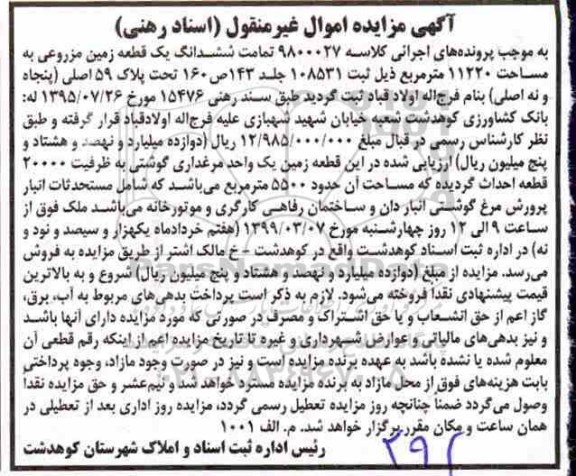 آگهی مزایده اموال غیرمنقول (اسناد رهنی)
به موجب پرونده‌های اجرائی کلاسه ۹۸۰۰۰۲۷ تمامت ششدانگ یک قطعه زمین مزروعی به
مساحت ۱۱۲۲۰ مترمربع ذیل ثبت ۱۰۸۵۳۱ جلد ۱۴۳ص۱۶۰ تحت پلاک ۵۹ اصلی (پنجاه
و نه اصلی) بنام فرج‌اله اولاد قباد ثبت گردید طبق سند رهنی ۱۵۴۷۶ مورخ ۱۳۹۵/۰۷/۲۶ له:
بانک کشاورزی کوهدشت شعبه خیابان شهید شهبازی علیه فرج‌اله اولادقباد قرار گرفته و طبق
نظر کارشناس رسمی در قبال مبلغ ۱۲/۹۸۵/۰۰۰/۰۰۰ ریال (دوازده میلیارد و نهصد و هشتاد و
پنج میلیون ریال) ارزیابی شده در این قطعه زمین یک واحد مرغداری گوشتی به ظرفیت ۲۰۰۰۰
قطعه احداث گردیده که مساحت آن حدود ۵۵۰۰ مترمربع می‌باشد که شامل مستحدثات انبار
پرورش مرغ گوشتی انبار دان و ساختمان رفاهی کارگری و موتورخانه می‌باشد ملک فوق از
ساعت ۹ الی ۱۲ روز چهارشنبه مورخ ۱۳۹۹/۰۳/۰۷ (هفتم خردادماه یکهزار و سیصد و نود و
نه) در اداره ثبت اسناد کوهدشت واقع در کوهدشت – خ مالک اشتر از طریق مزایده به فروش
می‌رسد. مزایده از مبلغ (دوازده میلیارد و نهصد و هشتاد و پنج میلیون ریال) شروع و به بالاترین
قیمت پیشنهادی نقداً فروخته می‌شود. لازم به ذکر است پرداخت بدهی‌های مربوط به آب، برق،
گاز اعم از حق انشعاب و یا حق اشتراک و مصرف در صورتی که مورد مزایده دارای آنها باشد
و نیز بدهی‌های مالیاتی و عوارض شهرداری و غیره تا تاریخ مزایده اعم از اینکه رقم قطعی آن
معلوم شده یا نشده باشد به عهده برنده مزایده است و نیز در صورت وجود مازاد، وجوه پرداختی
بابت هزینه‌های فوق از محل مازاد به برنده مزایده مسترد خواهد شد و نیم‌عشر و حق مزایده نقداً
وصول می‌گردد ضمناً چنانچه روز مزایده تعطیل رسمی گردد، مزایده روز اداری بعد از تعطیلی در
همان ساعت و مکان مقرر برگزار خواهد شد. م. الف ۱۰۰۱
رئیس اداره ثبت اسناد و املاک شهرستان کوهدشت